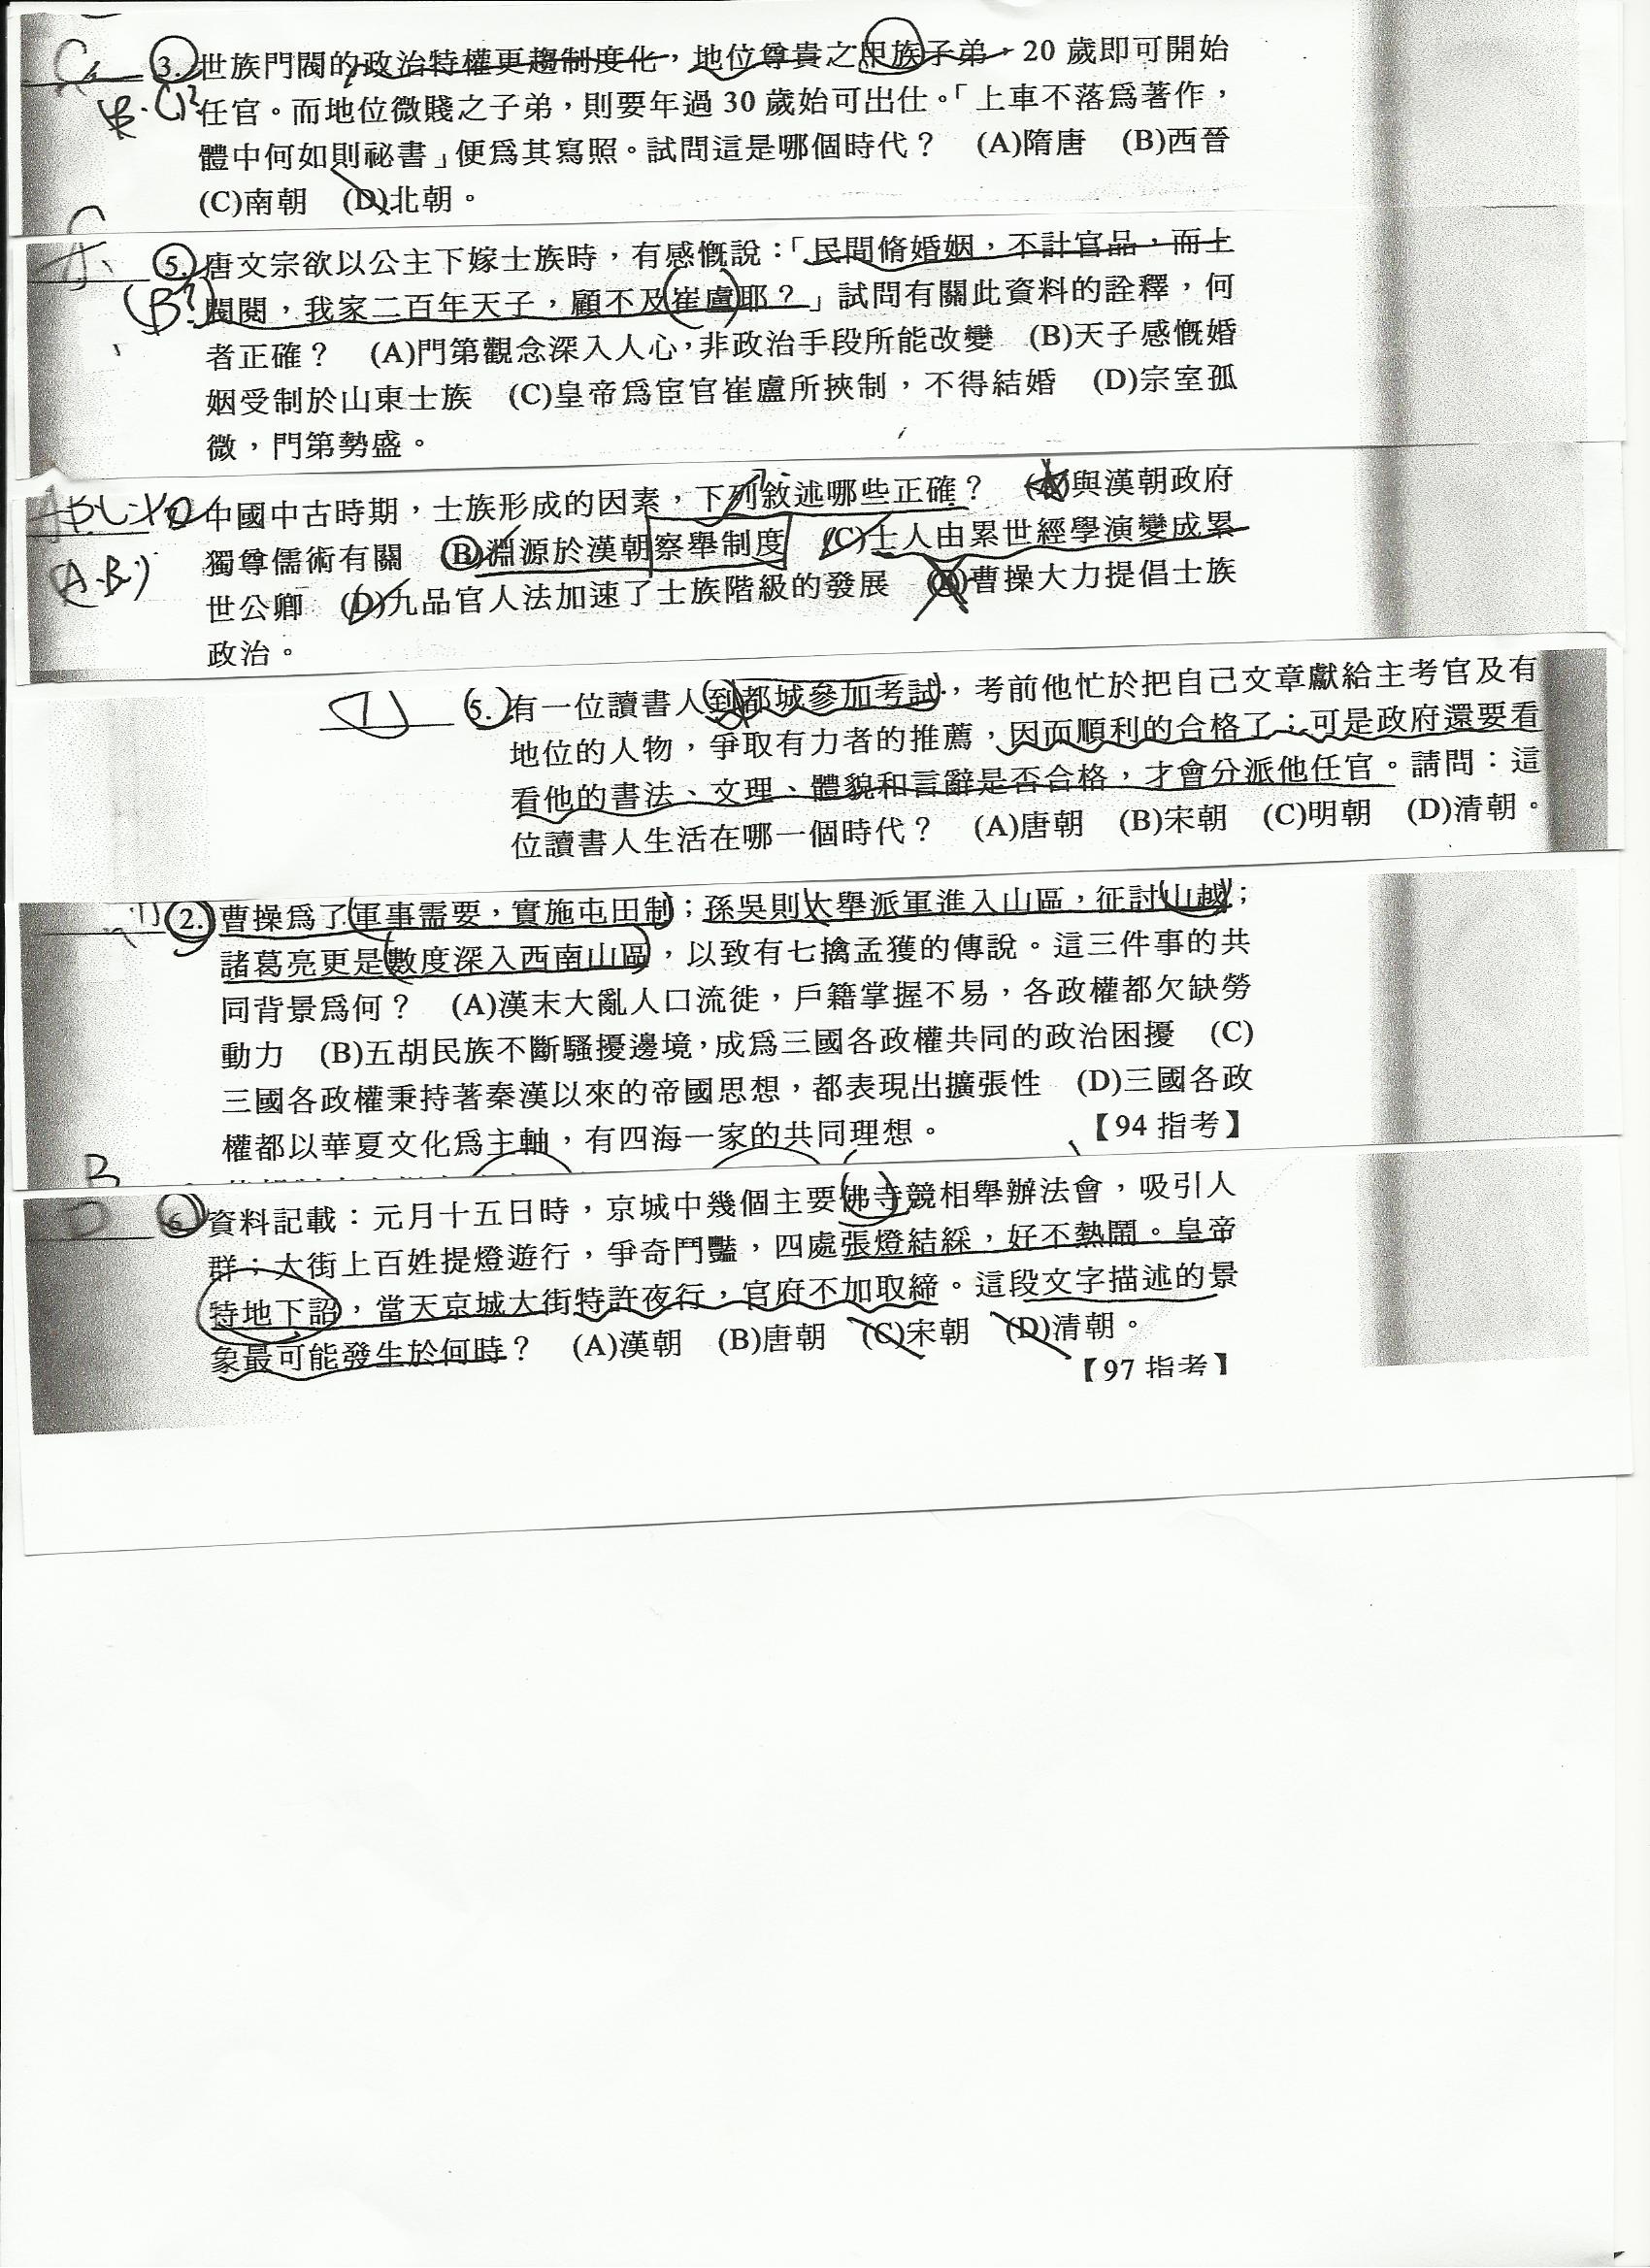 3. 世族門閥的政治特權更趨制度化，地位尊貴之甲族子弟，20 歲即可開始
(B.C)?
任官。而地位微賤之子弟，則要年過 30 歲始可出仕。「上車不落為著作，
體中何如則祕書」便為其寫照。試問這是哪個時代？ (A)隋唐 (B)西晉
(C)南朝 (D)北朝。
5. 唐文宗欲以公主下嫁士族時，有感慨說：「民間脩婚姻，不計官品，而上
(B?)
閥閱，我家二百年天子，顧不及崔盧耶？」試問有關此資料的詮釋，何
者正確？ (A)門第觀念深入人心，非政治手段所能改變 (B)天子感慨婚
姻受制於山東士族 (C)皇帝為宦官崔盧所挾制，不得結婚 (D)宗室孤
微，門第勢盛。
中國中古時期，士族形成的因素，下列敘述哪些正確？ (A)與漢朝政府
獨尊儒術有關 (B)淵源於漢朝察舉制度 (C)士人由累世經學演變成累
(A.B.)
世公卿 (D)九品官人法加速了士族階級的發展 (E)曹操大力提倡士族
政治。
5. 有一位讀書人到都城參加考試，考前他忙於把自己文章獻給主考官及有
地位的人物，爭取有力者的推薦，因而順利的合格了；可是政府還要看
看他的書法、文理、體貌和言辭是否合格，才會分派他任官。請問：這
位讀書人生活在哪一個時代？ (A)唐朝 (B)宋朝 (C)明朝 (D)清朝。
2. 曹操為了軍事需要，實施屯田制；孫吳則大舉派軍進入山區，征討山越；
諸葛亮更是數度深入西南山區，以致有七擒孟獲的傳說。這三件事的共
同背景為何？ (A)漢末大亂人口流徙，戶籍掌握不易，各政權都欠缺勞
動力 (B)五胡民族不斷騷擾邊境，成為三國各政權共同的政治困擾 (C)
三國各政權秉持著秦漢以來的帝國思想，都表現出擴張性 (D)三國各政
權都以華夏文化為主軸，有四海一家的共同理想。 【94 指考】
B
D 6. 資料記載：元月十五日時，京城中幾個主要佛寺競相舉辦法會，吸引人
群；大街上百姓提燈遊行，爭奇鬥豔，四處張燈結綵，好不熱鬧。皇帝
特地下詔，當天京城大街特許夜行，官府不加取締。這段文字描述的景
象最可能發生於何時？ (A)漢朝 (B)唐朝 (C)宋朝 (D)清朝。
【97 指考】